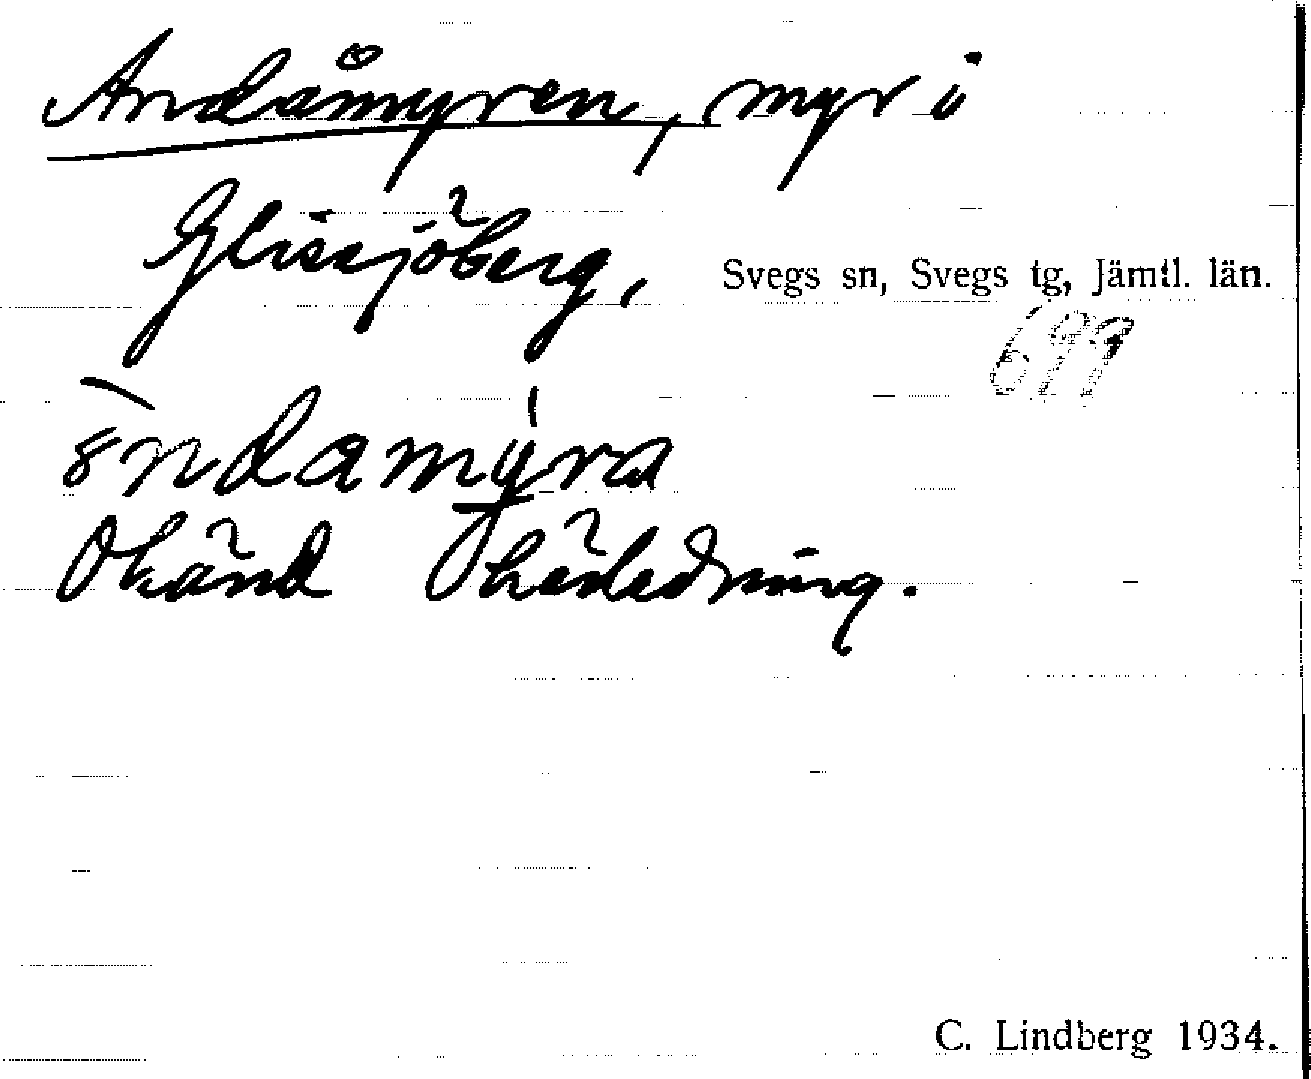 Andåmyren, myr i
Glissjöberg,
Svegs sn, Svegs tg, Jämtl. län.
699
òndamý̲ra
Okänd härledning.
C. Lindberg 1934.